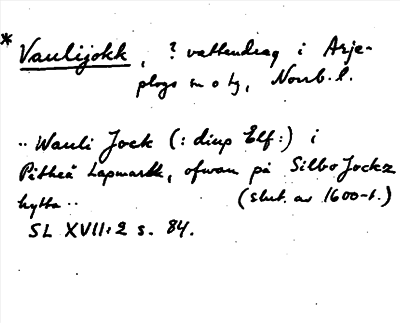 * Vaulijokk, ? vattendrag i Arje-
plogs sn o tg, Norrb. l.
.. Wauli Jock (: diup Elf:) i
Pitheå Lapmark, ofwan på Silbo Jockz
hytta .. (slut. av 1600-t.)
SL XVII:2 s. 84.